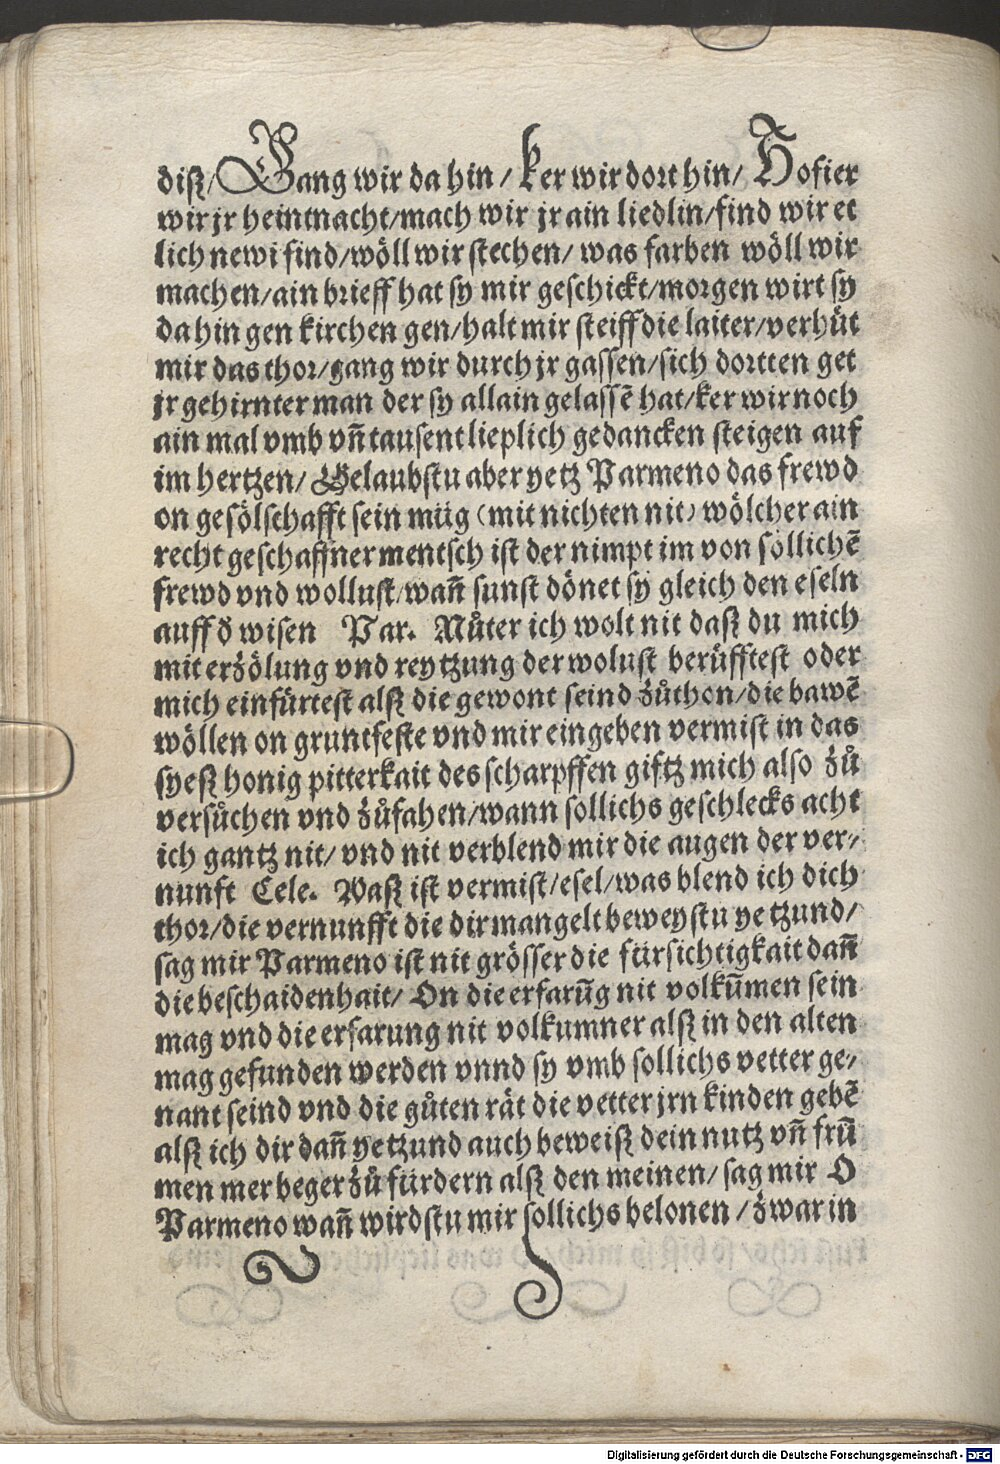 diſz/ Gang wir da hin / ker wir dort hin/ Hofier
wir jr heintnacht/mach wir jr ain liedlin/find wir et
lich newi find/wöll wir ſtechen/ was farben wöll wir
machen/ain brieff hat ſy mir geſchickt/morgen wirt ſy
da hin gen kirchen gen/halt mir ſteiff die laiter/verhuͤt
mir das thor/gang wir durch jr gaſſen/ſich dortten get
jr gehirnter man der ſy allain gelaſſē hat/ker wir noch
ain mal vmb vn̄ tauſent lieplich gedancken ſteigen auf
im hertzen/ Gelaubſtu aber yetz Parmeno das frewd
on geſölſchafft ſein müg (mit nichten nit) wölcher ain
recht geſchaffner mentſch iſt der nimpt im von ſöllichē
frewd vnd wolluſt/wan̄ ſunſt dönet ſy gleich den eſeln
auff đ wiſen Par. Muͦter ich wolt nit daſz du mich
mit erzölung vnd reytzung der woluſt berüffteſt oder
mich einfürteſt alſz die gewont ſeind zuͦthon/die bawē
wöllen on gruntfeſte vnd mir eingeben vermiſt in das
ſyeſz honig pitterkait des ſcharpffen giftz mich alſo zuͦ
verſuͦchen vnd zuͦfahen/wann ſollichs geſchlecks acht
ich gantz nit/ vnd nit verblend mir die augen der ver⸗
nunft Cele. Waſz iſt vermiſt/eſel/was blend ich dich
thor/die vernunfft die dir mangelt beweyſtu yetzund/
ſag mir Parmeno iſt nit gröſſer die fürſichtigkait dan̄
die beſchaidenhait/ On die erfarūg nit volkūmen ſein
mag vnd die erfarung nit volkumner alſz in den alten
mag gefunden werden vnnd ſy vmb ſollichs vetter ge⸗
nant ſeind vnd die guͦten rät die vetter jrn kinden gebē
alſz ich dir dan̄ yetzund auch beweiſz dein nutz vn̄ frū
men mer beger zuͦ fürdern alſz den meinen/ ſag mir O
Parmeno wan̄ wirdſtu mir ſollichs belonen / zwar in
Digitalisierung gefördert durch die Deutsche Forschungsgemeinschaft - DFG